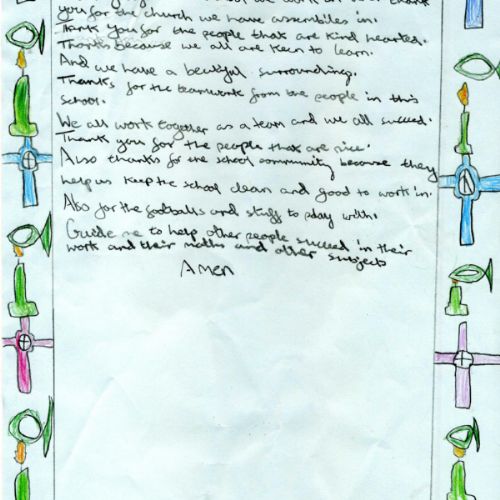 thank
you for the church we have assemblies in.
Thank you for the people that are kind hearted.
Thanks because we all are keen to learn.
And we have a beutiful surrounding.
Thanks for the teamwork from the people in this
school.
We all work together as a team and we all succeed.
Thank you for the people that are nice.
Also thanks for the school community because they
help us keep the school clean and good to work in.
Also for the footballs and stuff to play with.
Guide me to help other people succeed in their
work and their maths and other subjects
Amen